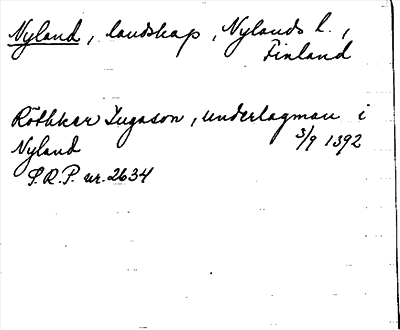 Nyland, landskap, Nylands l.,
Finland
Röthker Ingason, underlagman i
Nyland 3/9 1392
S.R.P. nr. 2634